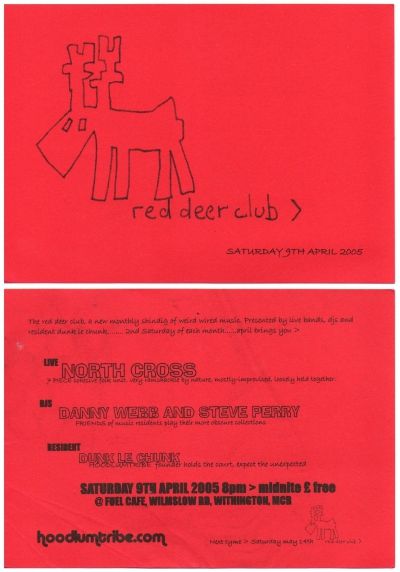 red deer club >
SATURDAY 9TH APRIL 2005
The red deer club, a new monthly shindig of weird wired music. Presented by live bands, djs and
resident dunk le chunk........ 2nd Saturday of each month......april brings you >
LIVE
NORTH CROSS
7 PIECE cohesive folk unit. very ramshackle by nature, mostly-improvised, loosely held together.
DJS
DANNY WEBB AND STEVE PERRY
FRIENDS of music residents play their more obscure collections
RESIDENT
DUNK LE CHUNK
HOODLUMTRIBE founder holds the court, expect the unexpected
SATURDAY 9TH APRIL 2005 6pm > midnite £ free
@ FUEL CAFE, WILMSLOW RD, WITHINGTON, MCR
hoodlumtribe.com
Next tyme > Saturday may 14th
red deer club >